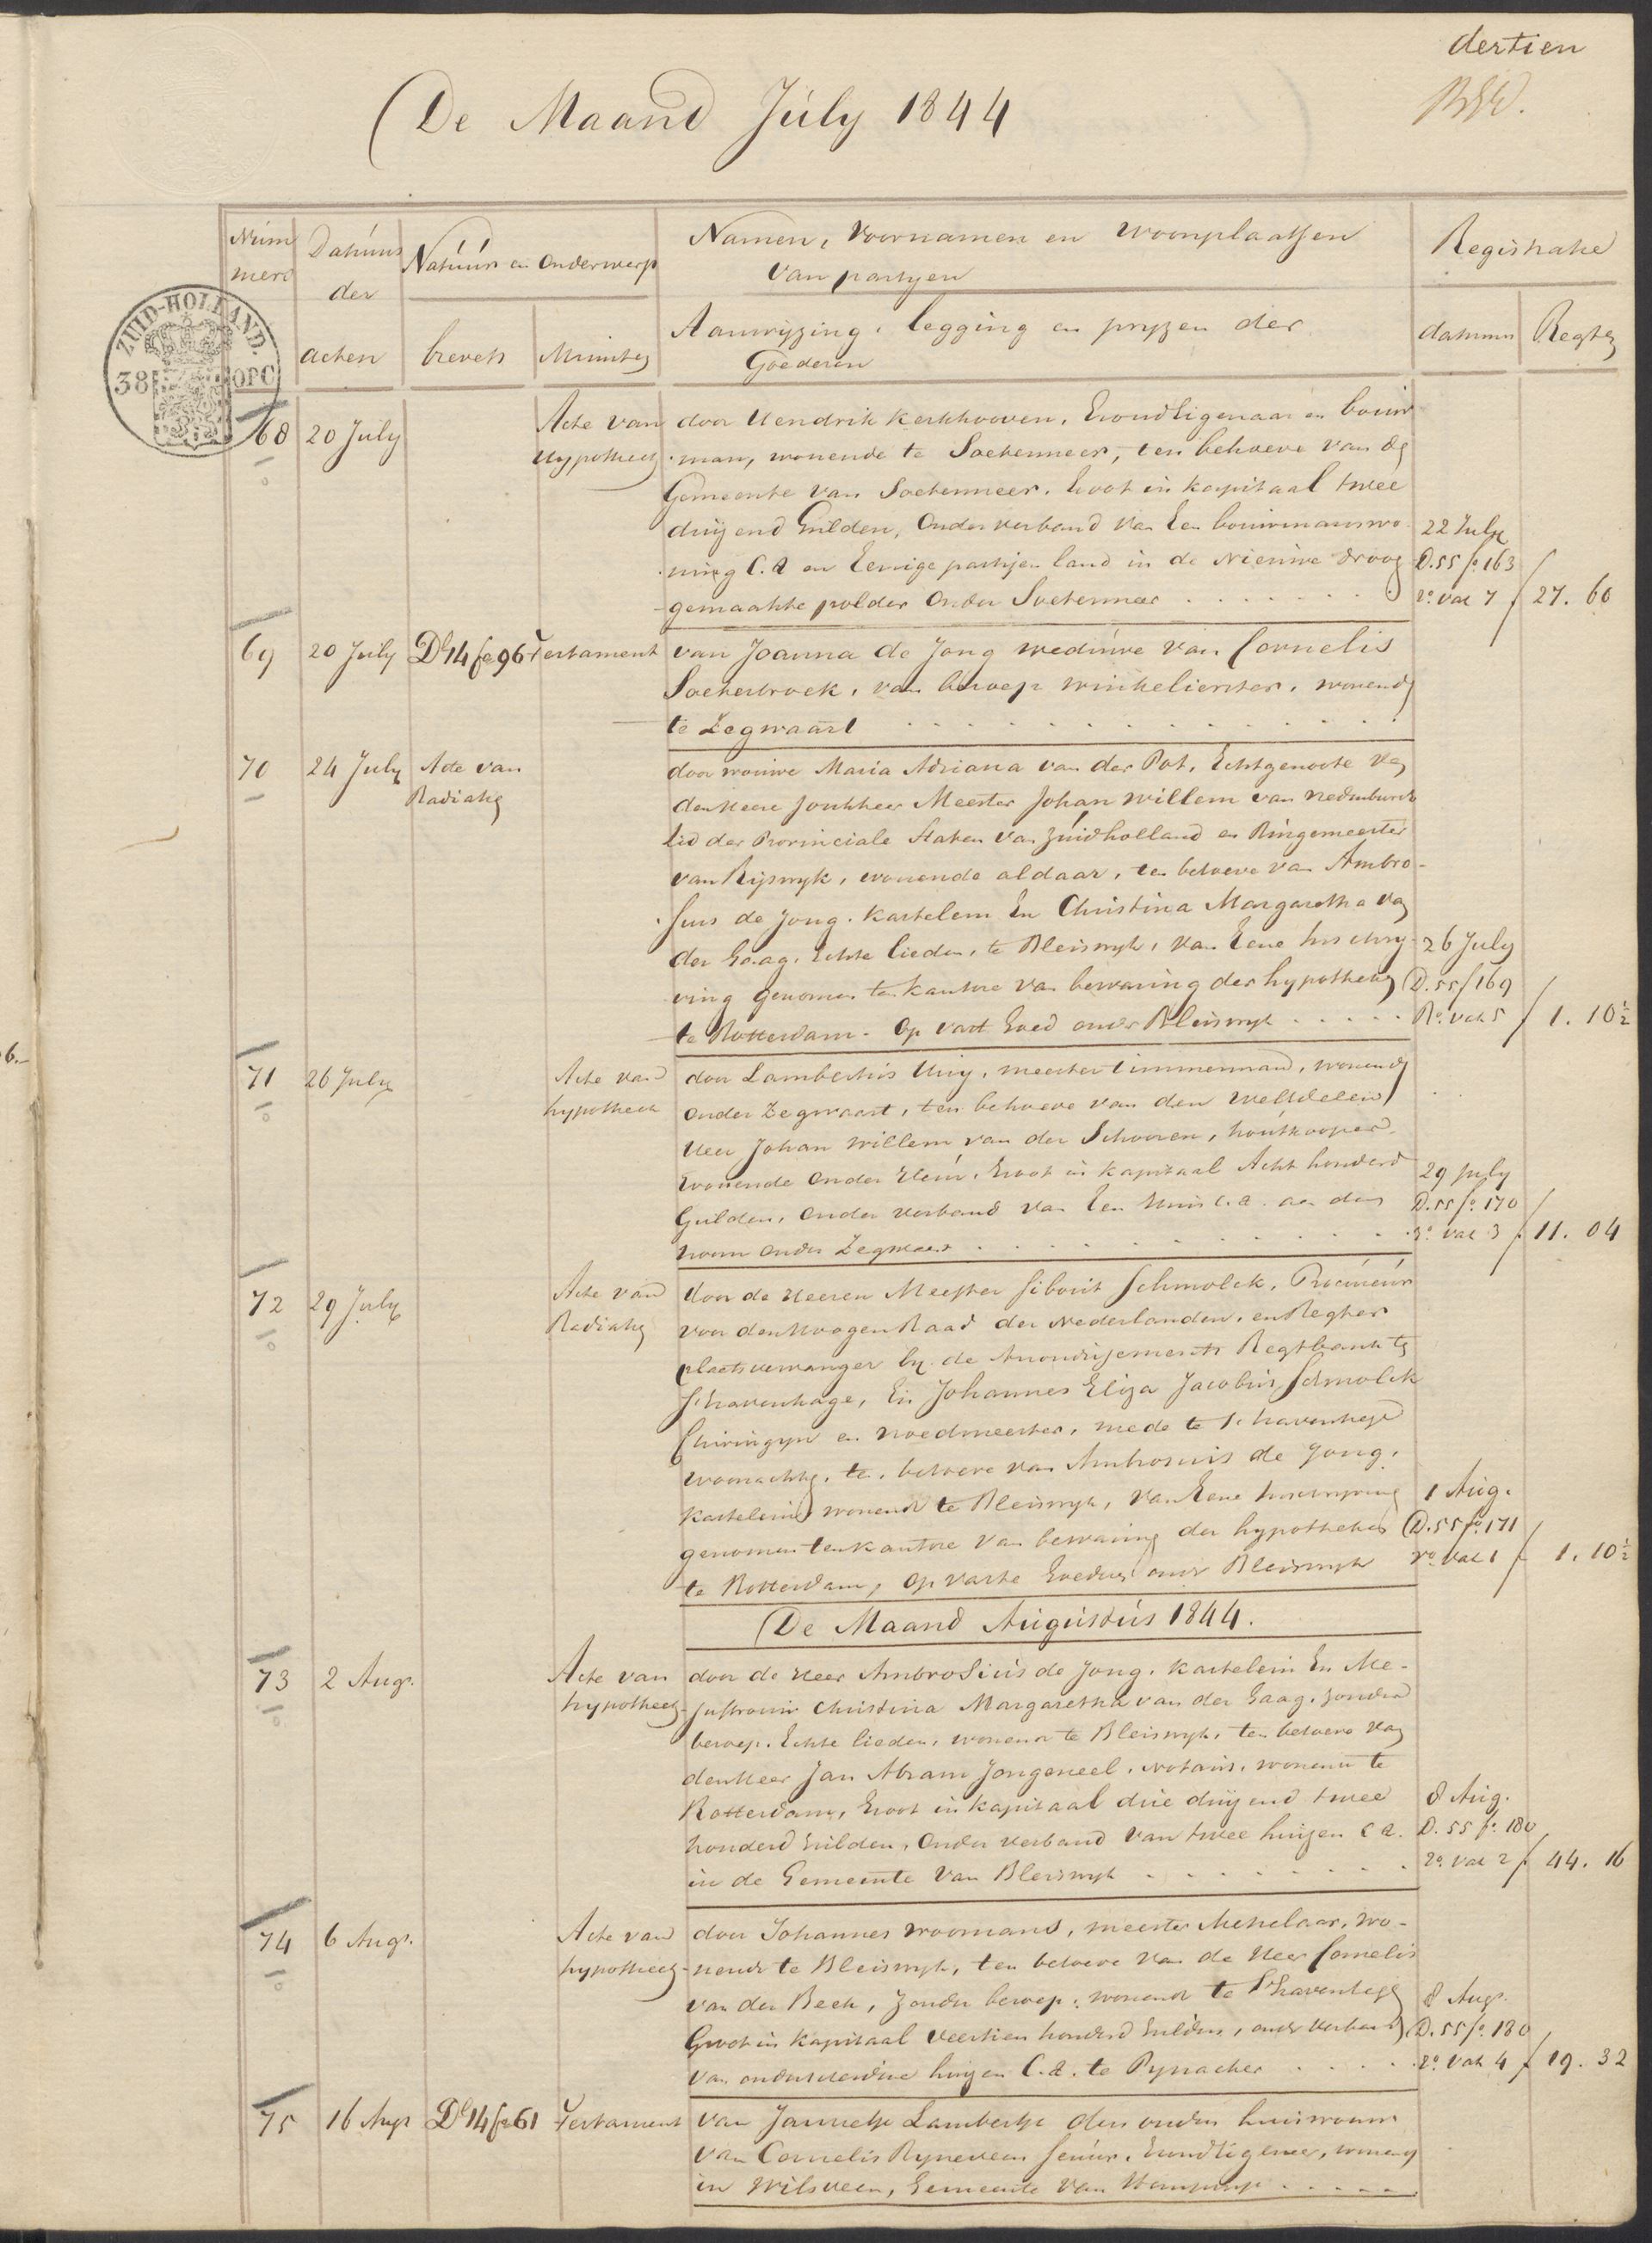 dertien
De Maand July 1844
Num
mers
Datums
der
acten
Natuur en Onderwerp
brevets
Minuten
Namen, Voornamen en Woonplaatsen
van partyen
Aanwyzing, legging en pryzen der
Goederen
Registratie
datums
Regten
ZUID-HOLLAND.
38 OPC
68 20 July
Acte van
Hypotheek
door Hendrik Kerkhooven, Grondeigenaar en bouw
man, wonende te Soetermeer, ten behoeve van de
Gemeente van Soetermeer, Groot in kapitaal twee
duizend Gulden, Onder verband van Een bouwmanswo
ning C.A en Eenige partijen land in de Nieuwe droog
gemaakte polder Onder Soetermeer
22 July
D. 55 fo 163
vo. vak 7 f 27. 60
69 20 July Dl 14 fo 96 Testament
van Joanna de Jong weduwe van Cornelis
Soeterbroek, van beroep winkelierster, wonende
te Zegwaart
70 24 July Acte van
Radiatie
door vrouwe Maria Adriana van der Pot, Echtgenoote van
den Heere Jonkheer Meester Johan Willem van Nedenburch
lid der Provinciale Staten van Zuidholland en Burgemeester
van Rijswyk, wonende aldaar, ten behoeve van Ambro-
sius de Jong, Kastelein En Christina Margaretha van
der Gaag, Echte lieden, te Bleiswyk, van Eene Inschry-
ving genomen ten kantore van bewaring der hypotheken
te Rotterdam - Op vast Goed onder Bleiswyk
26 July
D. 55 f 169
Ro. vak 5 f 1. 10½
71 26 July
Acte van
hypotheek
door Lambertus Uuy, meester timmerman, wonende
onder Zegwaart, ten behoeve van den WelEdelen
Heer Johan Willem van der Schooren, houtkooper
wonende onder, Groot in kapitaal Acht honderd
Gulden, onder verband van Een Huis c.a. aan den
onder Zegwaart
29 July
D. 55 fo 170
vak 3 f 11. 04
72 29 July
Acte van
Radiatie
door de Heeren Meester Sibout Schmolck, Procureur
voor den Hoogen Raad der Nederlanden, en Regter
plaatsvervanger by de Arrondissements Regtbank te
s'Gravenhage, En Johannes Eliza Jacobus Schmolck
Chirurgyn en vroedmeester, mede te s'Gravenhage
woonachtig, ten behoeve van Ambrosius de Jong,
Kastelein wonende te Bleiswyk, van Eene Inschryving
genomen ten kantore van bewaring der hypotheken
te Rotterdam, op vaste Goederen onder Bleiswyk
1 Aug.
D. 55 fo 171
vo. vak 1 f 1. 10½
De Maand Augustus 1844.
73 2 Augs.
Acte van
hypotheek
door de Heer Ambrosius de Jong, Kastelein En Me-
jufvrouw Christina Margaretha van der Gaag, zonder
beroep, Echte lieden, wonende te Bleiswyk, ten behoeve van
den Heer Jan Abram Jongeneel, notaris, wonende te
Rotterdam, Groot in kapitaal drie duizend twee
honderd Gulden, Onder verband van twee huizen C.A.
in de Gemeente van Bleiswyk
8 Aug.
D. 55 fo. 180
vo. vak 2 f 44. 16
74 6 Augs.
Acte van
hypotheek
door Johannes Vroomans, meester Metselaar, wo-
nende te Bleiswyk, ten behoeve van de Heer Cornelis
van der Beek, zonder beroep, wonende te s'Gravenhage
Groot in kapitaal veertien honderd Gulden, onder verband
van onderscheidene huizen C.A. te Pynacker
8 Augs.
D. 55 fo. 180
vo. vak 4 f 19. 32
75 16 Augs Dl 14 fo 61 Testament
van Jannetje Lambertje den ouden huisvrouw
van Cornelis Ryneveen Senior, Grondeigenaar, wonende
in Wilsveen, Gemeente van